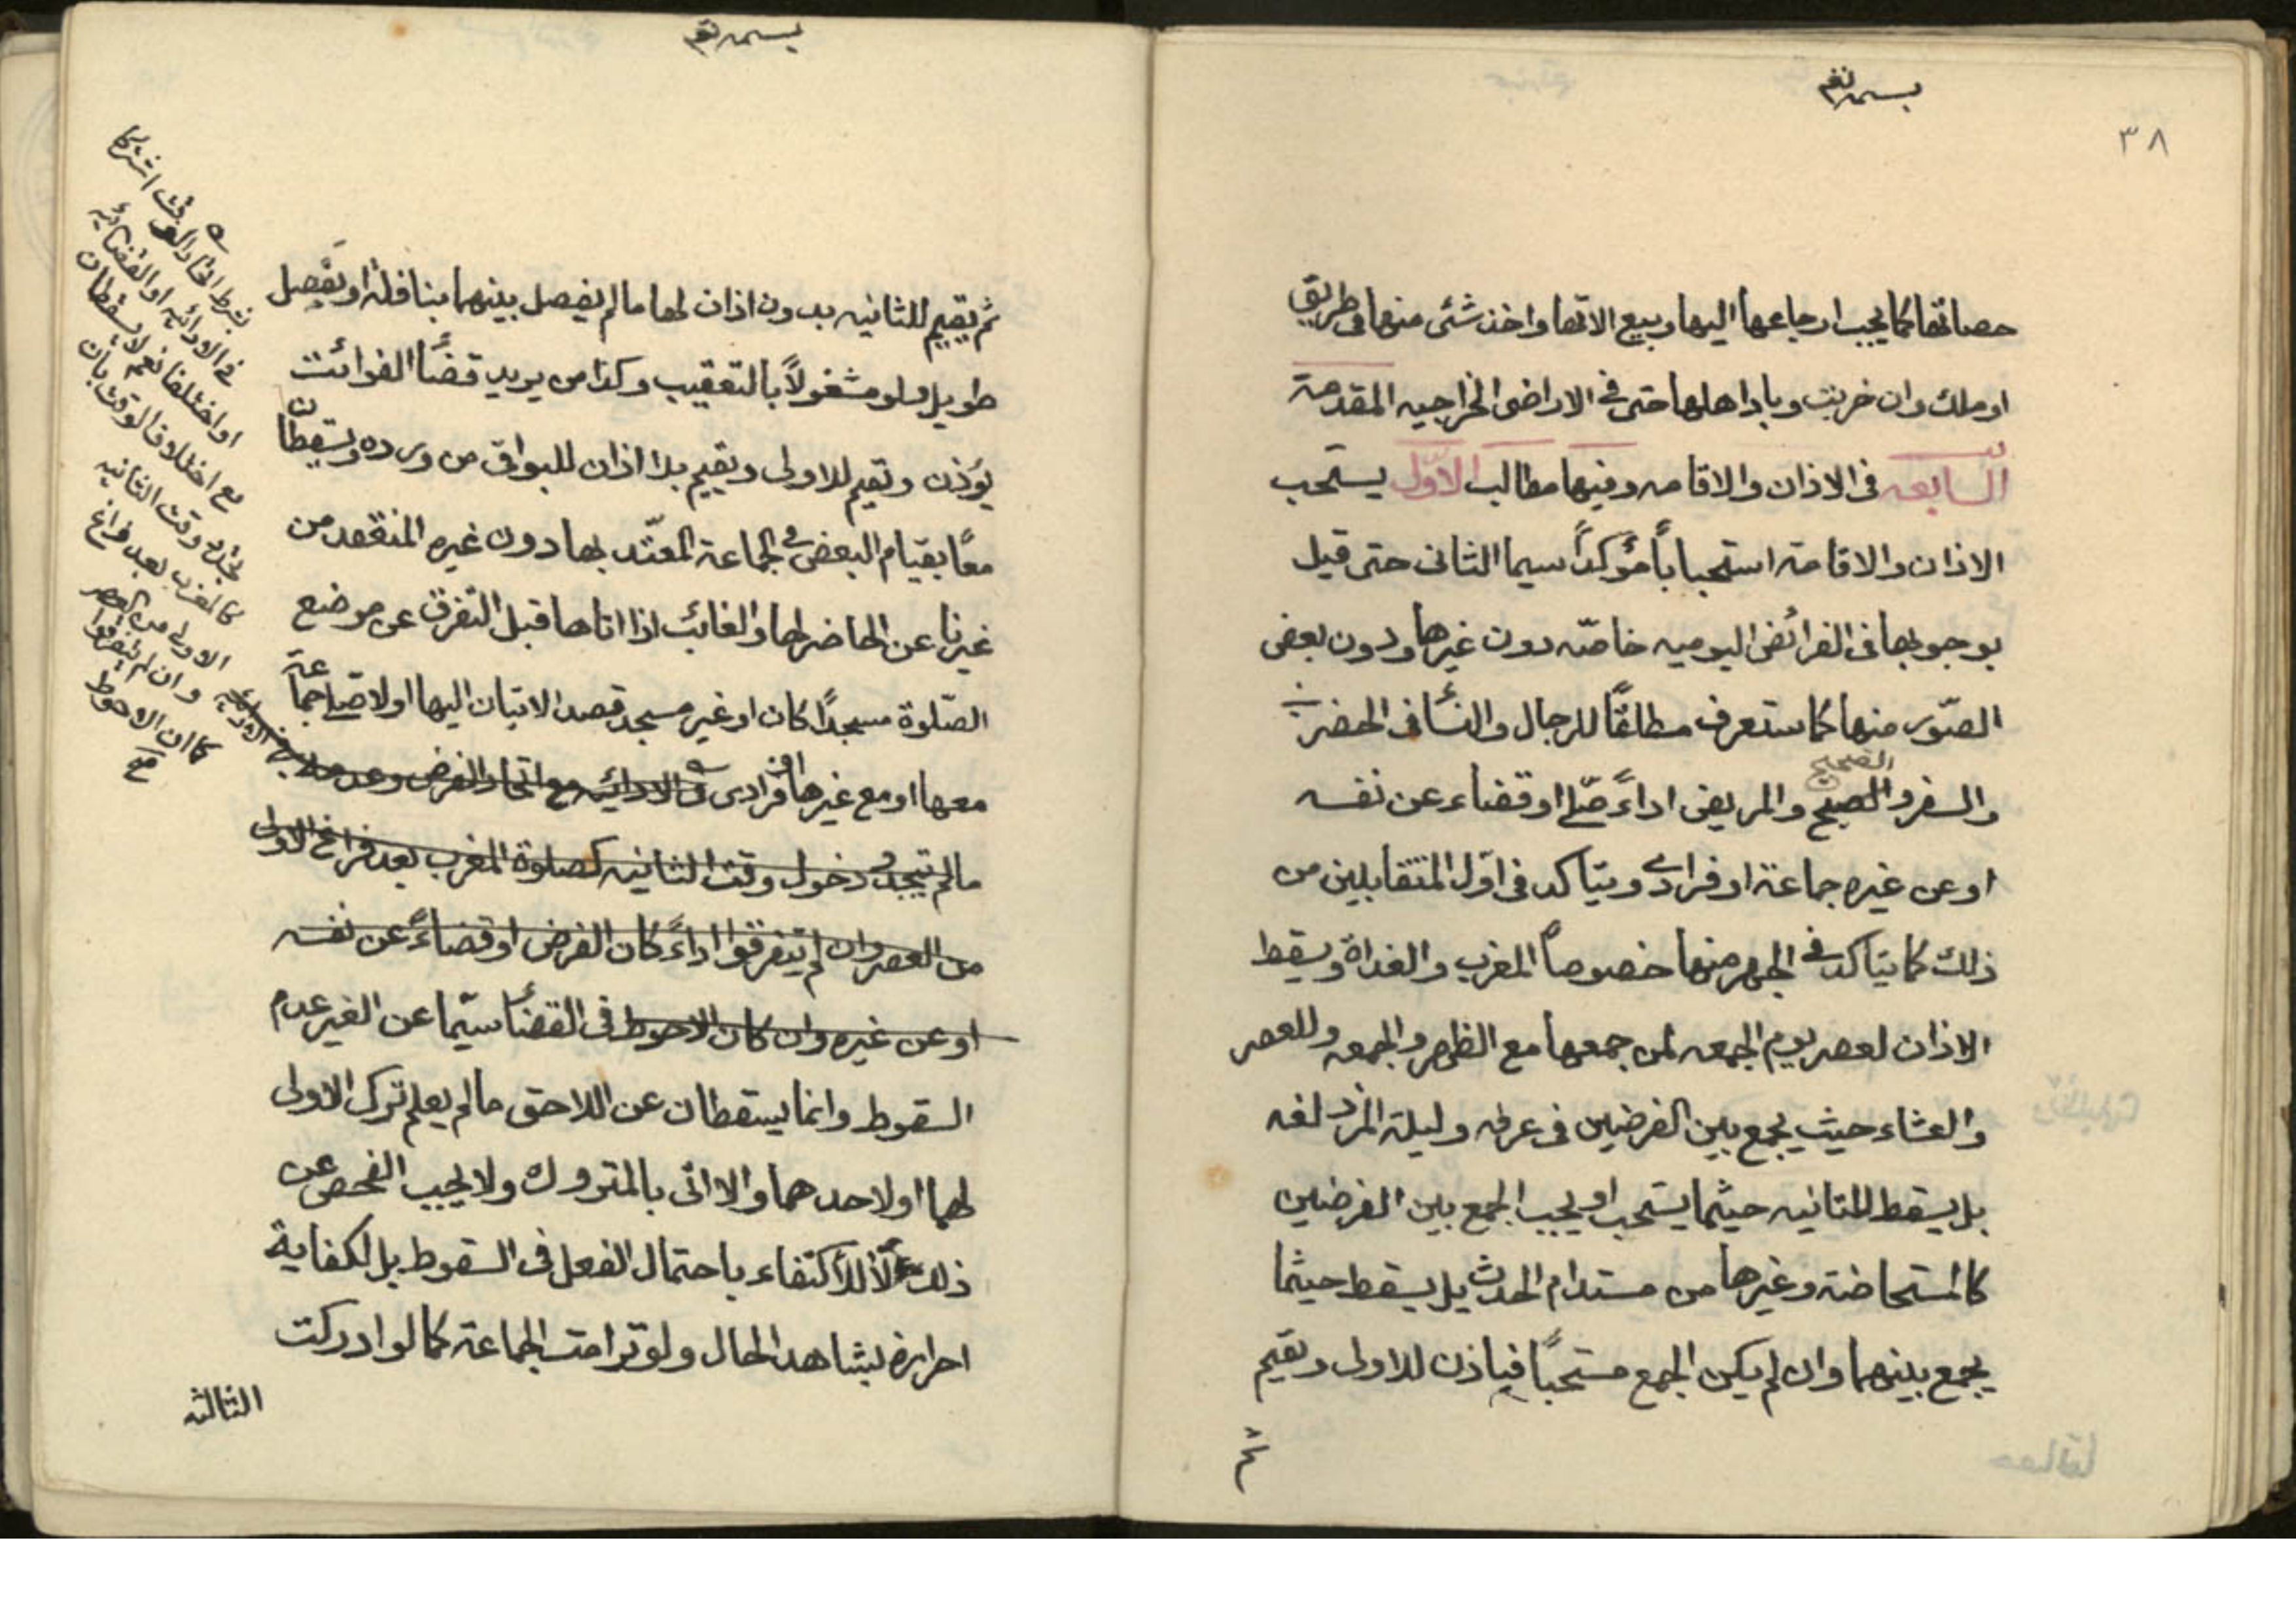 بسمه تعم
٣٨
حصاتها كما يجب ارجاعها اليها وبيع الاتها واخذ شئ منها فى طريق
او ملك وان خربت وباد اهلها حتى فى الاراضى الخراجيه المقدمة
السابعه فى الاذان والاقامه وفيها مطالب الاوّل يستحب
الاذان والاقامة استحباباً مؤكداً سيما الثانى حتى قيل
بوجوبها فى الفرائض اليوميه خاصّه دون غيرها ودون بعض
الصّور منها كما ستعرف مطلقاً للرجال والنسأ فى الحضر
والسفر والصحيح والمريض اداءً صلّى او قضاء عن نفسه
او عن غيره جماعة او فرادى ويتاكد فى اوّل المتقابلين من
ذلك كما يتاكد فى الجهر منها خصوصاً المغرب والغداة ويسقط
الاذان لعصر يوم الجمعه لمن جمعها مع الظهر والجمعه وللعصر
والعشاء حيث يجمع بين الفرضين فى عرفه وليلة المزدلفه
بل يسقط للثانيه حيثما يستحب او يجب الجمع بين الفرضين
كالمستحاضة وغيرها من مستدام الحدث بل يسقط حيثما
يجمع بينهما وان لم يكن الجمع مستحباً فياذن للاولى ويقيم
ثم
بسمه تعم
ثم يقيم للثانيه بدون اذان لها ما لم يفصل بينهما بنافلة او بفصل
طويل ولو مشغولاً بالتعقيب وكذا من يريد قضأ الفوائت
يؤذن ويقيم للاولى ويقيم بلا اذان للبواقى من ورده ويسقطان
معًا بقيام البعض فى الجماعة المعتّد بها دون غيره المنعقد من
غيرنا عن الحاضر لها والغائب اذا اتاها قبل التفرق عن موضع
الصّلوة مسجداً كان او غير مسجد قصد الاتيان اليها اولا صلى جماعة
معها او مع غيرها او فرادى والادائيه مع اتحاد الفرض وعدمه
ما لم يتجدد دخول وقت الثانيه كصلوة المغرب بعد فراغ الاولى
من العصر وان لم يتفرقوا اداءً كان الفرض او قضاءً عن نفسه
او عن غيره وان كان الاحوط فى القضأ سيّما عن الغير عدم
السقوط وانما يسقطان عن اللاحق ما لم يعلم ترك الاولى
لهما او لاحدهما والا اتى بالمتروك ولا يجب الفحص عن
ذلك للأكتفاء باحتمال الفعل فى السقوط بل لكفاية
احرازه بشاهد الحال ولو ترامت الجماعة كما لو ادركت
الثالثه
بشرط اتحاد الوقت اشتركا
فى الادائيه او القضائيه
او اختلفا نعم لا يسقطان
مع اختلاف الوقت بان
دخل وقت الثانيه
كالمغرب بعد فراغ
الاولى من العصر
وان لم يتفرقوا
كما ان الاحوط